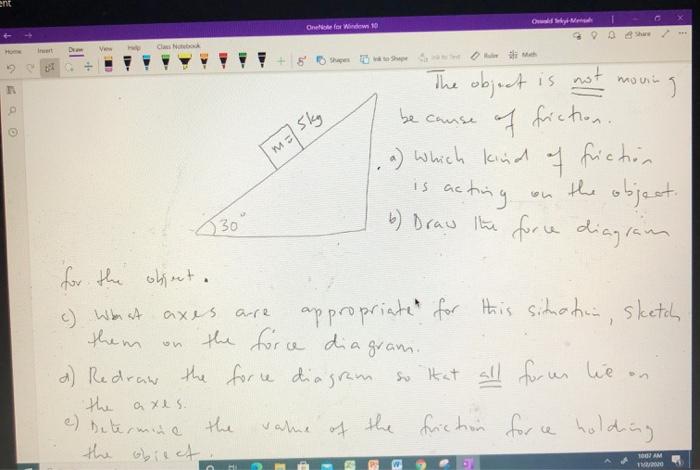 ent
OneNote for Windows 10
Oswald Sekyi-Mensah
Home Insert Draw View Help Class Notebook
Share
Shapes Ink to Shape Ink to Text Ruler Math
The object is not moving
because of friction.
m = 5kg
a) Which kind of friction
is acting on the object.
30°
b) Draw the force diagram
for the object.
c) What axes are appropriate for this situation, sketch
them on the force diagram.
d) Redraw the force diagram so that all forces lie on
the axes.
e) Determine the value of the friction force holding
the object.
10:07 AM
11/2/2020